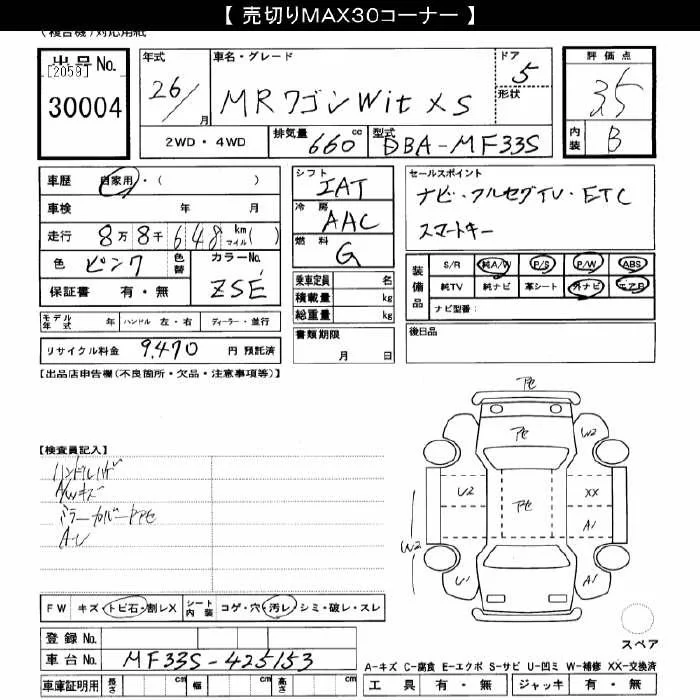 【 売切りMAX30コーナー 】
(複合機)対応用紙
出品号No.
[2059]
30004
年式
26/
月
車名・グレード
MRワゴン Wit XS
ドア
5
形状
評価点
3.5
内装
B
2WD・4WD
排気量
660 cc
型式
DBA-MF33S
車歴
自家用・( )
車検 年 月
走行
8万8千648 km マイル( )
色
ピンク
色替
カラーNo.
ZSE
保証書 有・無
シフト
IAT
冷房
AAC
燃料
G
乗車定員 名
積載量 kg
総重量 kg
セールスポイント
ナビ・フルセグTV・ETC
スマートキー
装備品
S/R 純A/W P/S P/W ABS
純TV 純ナビ 革シート 外ナビ エアB
ナビ型番:
モデル年式 年 ハンドル 左・右 ディーラー・並行
リサイクル料金 9,470 円 預託済
書類期限
月 日
後日品
【出品店申告欄(不良箇所・欠品・注意事項等)】
【検査員記入】
A/Wキズ
アセ
アセ
アセ
U2
W2
U2
XX
A1
W2
U1
A1
FW キズ・トビ石・割レX シート内装 コゲ・穴・汚レ・シミ・破レ・スレ
スペア
登録No.
車台No. MF33S-425153
A-キズ C-腐食 E-エクボ S-サビ U-凹ミ W-補修 XX-交換済
車庫証明用 長さ cm 幅 cm 高さ cm
工具 有・無 ジャッキ 有・無